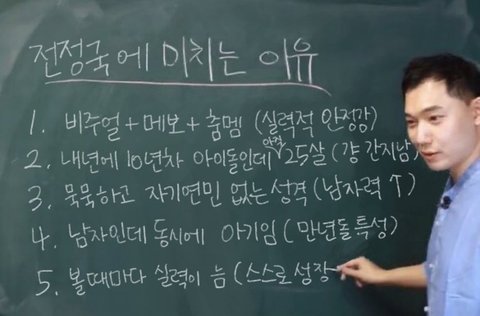 전정국에 미치는 이유
1. 비주얼+메보+춤멤 (실력적 안정감)
2. 내년에 10년차 아이돌인데 안적 25살 (걍 간지남)
3. 묵묵하고 자기연민 없는 성격 (남자력 ↑)
4. 남자인데 동시에 아기임 (만년돌 특성)
5. 볼때마다 실력이 늠 (스스로 성장